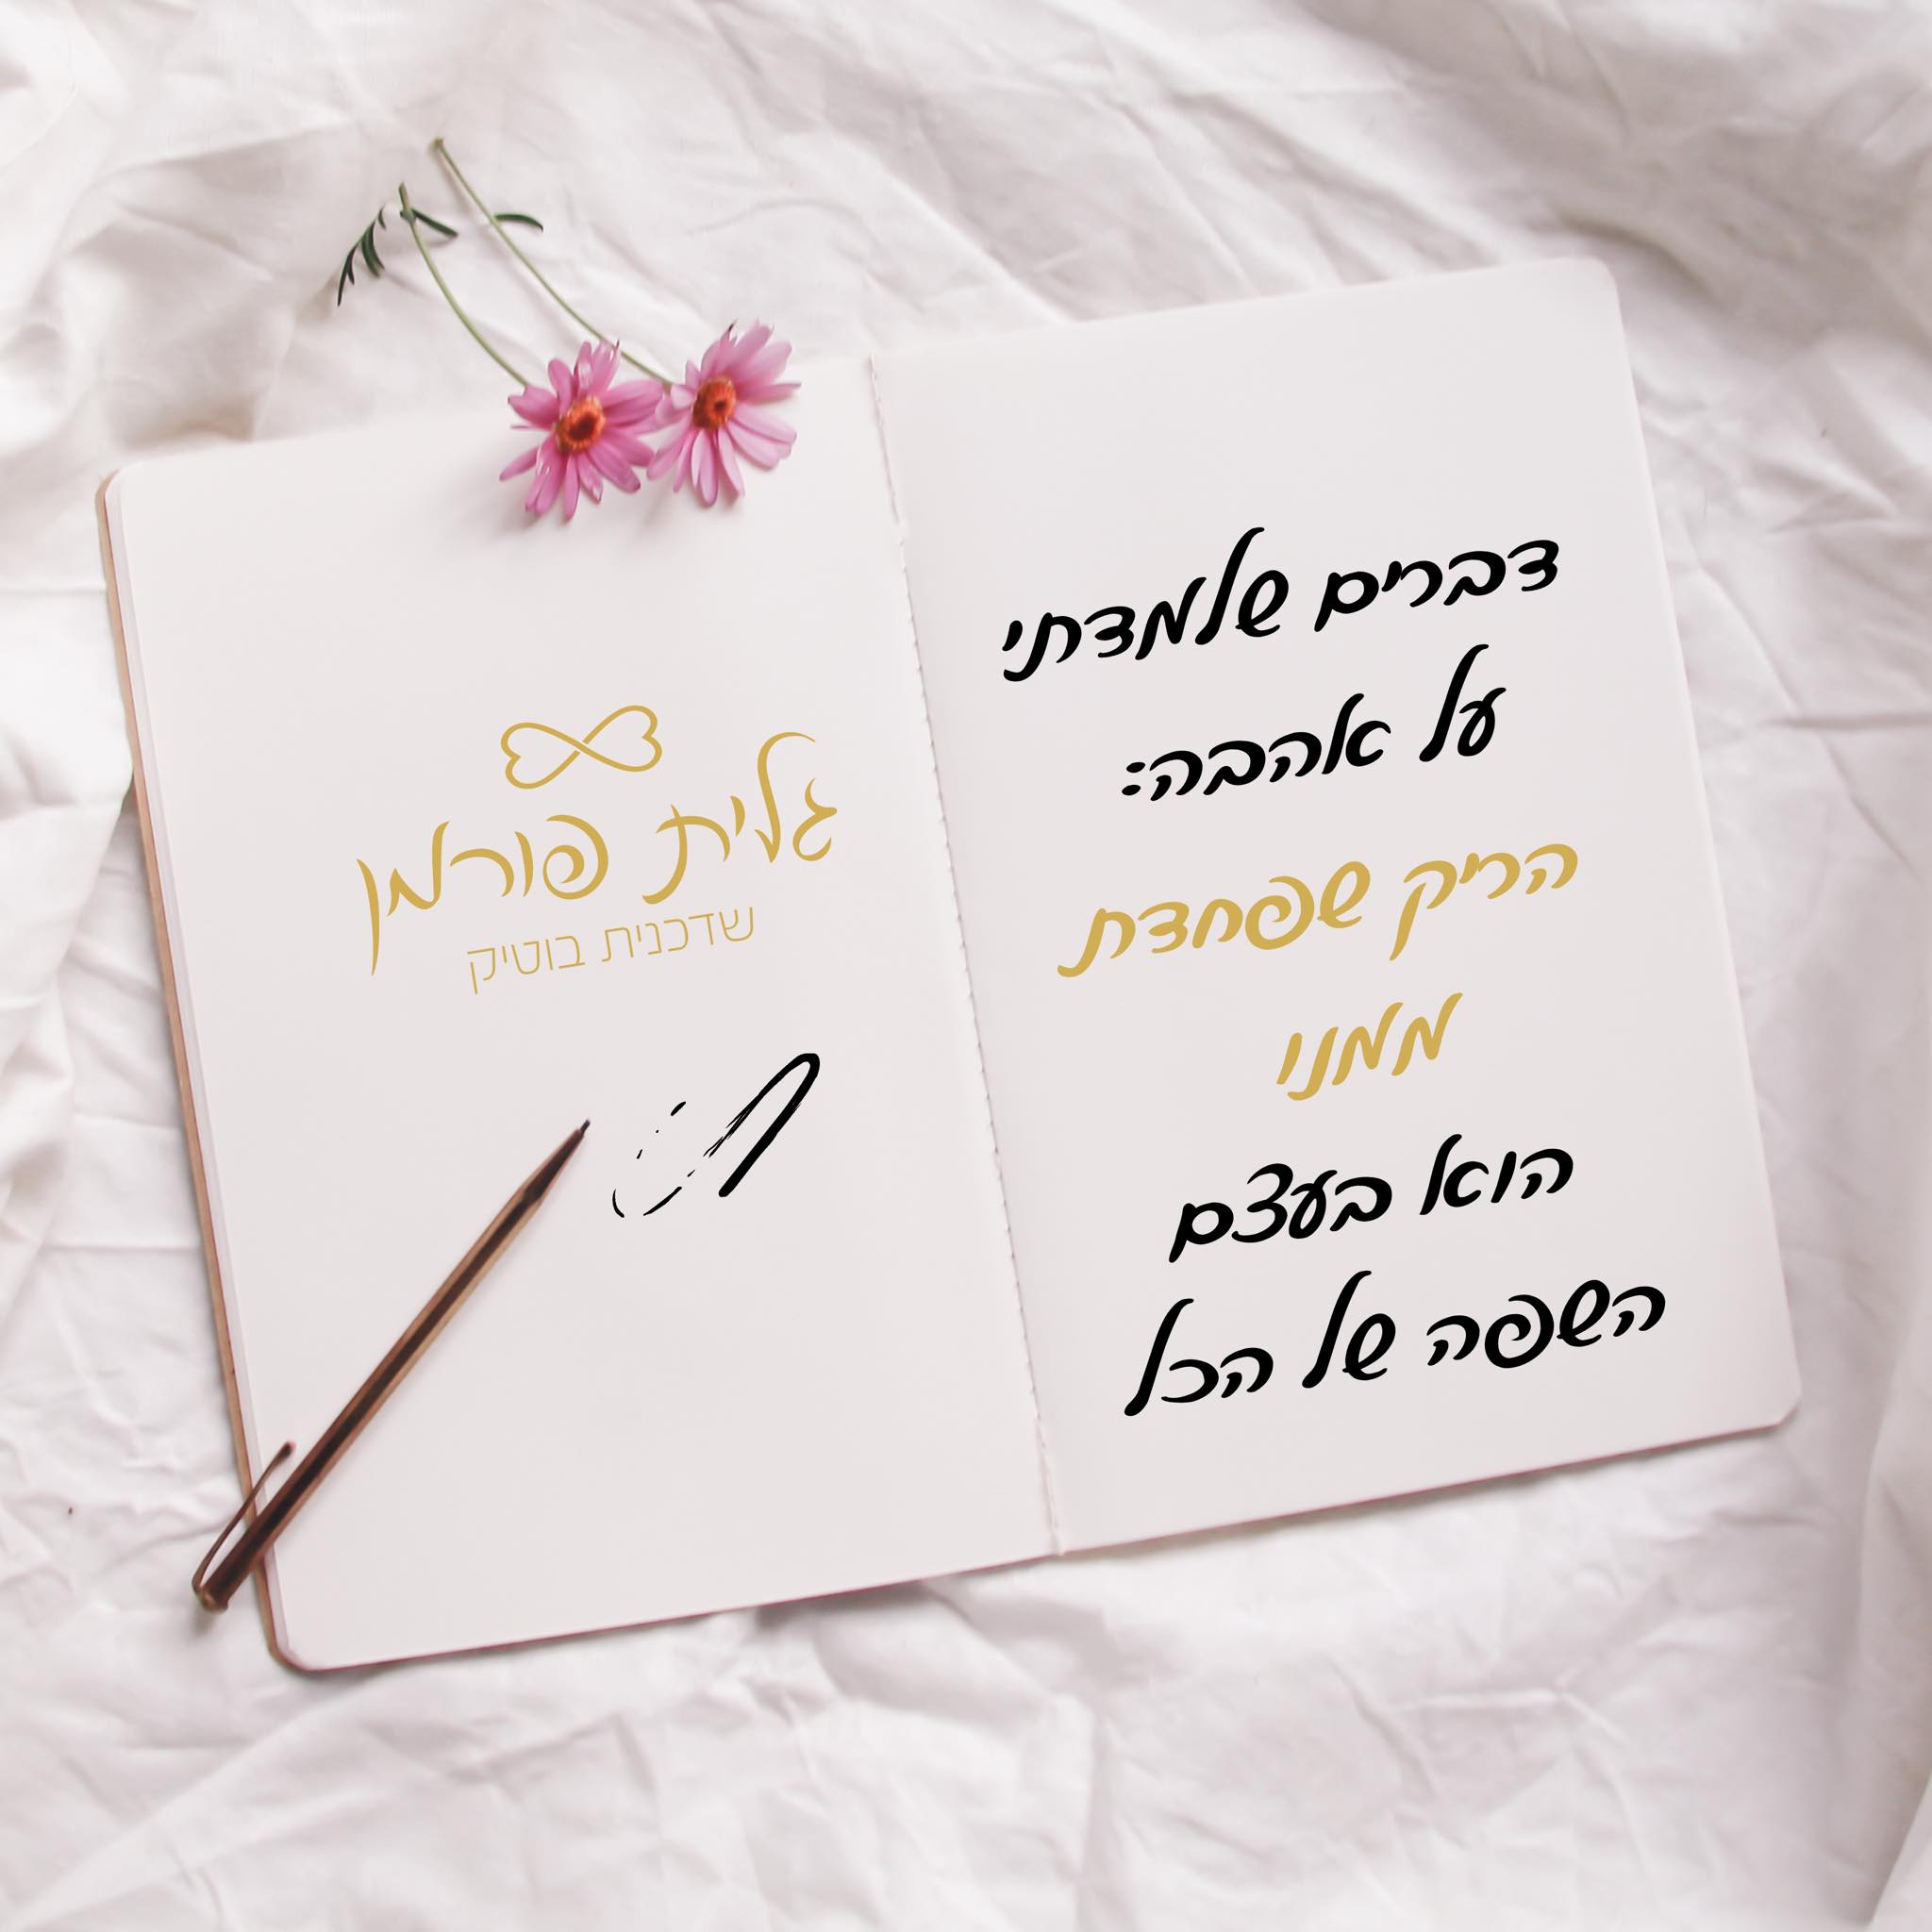 דברים שלמדתי
על אהבה:
הריק שפחדת
ממנו
הוא בעצם
השפה של הכל
גלית פורמן
שדכנית בוטיק